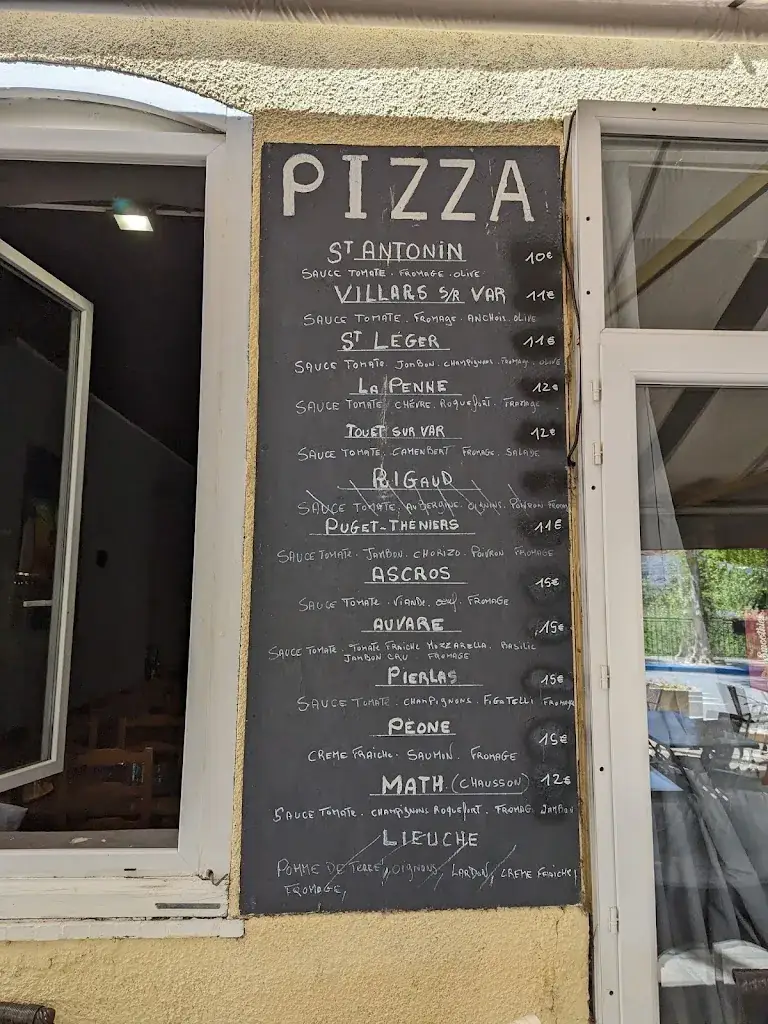 PIZZA
ST ANTONIN 10€
SAUCE TOMATE. FROMAGE. OLIVE
VILLARS S/R VAR 11€
SAUCE TOMATE. FROMAGE. ANCHOIS. OLIVE
ST LÉGER 11€
SAUCE TOMATE. JAMBON. CHAMPIGNONS. FROMAGE. OLIVE
LA PENNE 12€
SAUCE TOMATE. CHÈVRE. ROQUEFORT. FROMAGE
TOUET SUR VAR 12€
SAUCE TOMATE. CAMEMBERT FROMAGE. SALADE
RIGAUD
SAUCE TOMATE, AUBERGINE. OIGNONS, POIVRON FROM
PUGET-THÉNIERS 11€
SAUCE TOMATE. JAMBON. CHORIZO. POIVRON FROMAGE
ASCROS 15€
SAUCE TOMATE. VIANDE. OEUF. FROMAGE
AUVARE 15€
SAUCE TOMATE. TOMATE FRAICHE MOZZARELLA. BASILIC
JAMBON CRU. FROMAGE
PIERLAS 15€
SAUCE TOMATE. CHAMPIGNONS. FIGATELLI FROMAGE
PÉONE 15€
CREME FRAICHE. SAUMON. FROMAGE
MATH (CHAUSSON) 12€
SAUCE TOMATE. CHAMPIGNONS ROQUEFORT. FROMAG. JAMBON
LIEUCHE
POMME DE TERRE, OIGNONS, LARDON, CREME FRAICHE,
FROMAGE,